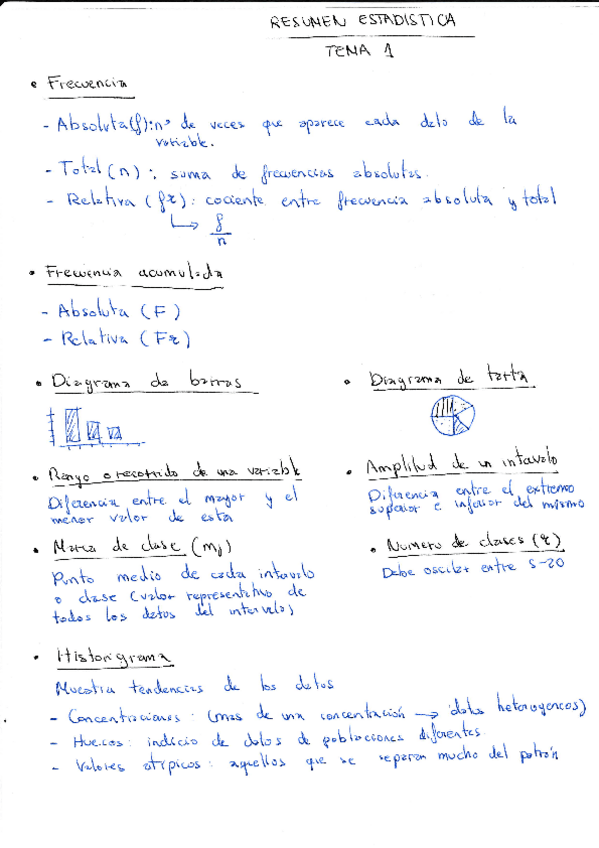 RESUMEN ESTADISTICA
TEMA 1
• Frecuencia
- Absoluta(f): nº de veces que aparece cada dato de la
variable.
- Total (n): suma de frecuencias absolutas.
- Relativa (fr): cociente entre frecuencia absoluta y total
↳ f/n
• Frecuencia acumulada
- Absoluta (F)
- Relativa (Fr)
• Diagrama de barras
• Diagrama de tarta
• Rango o recorrido de una variable
Diferencia entre el mayor y el
menor valor de esta
• Amplitud de un intervalo
Diferencia entre el extremo
superior e inferior del mismo
• Marca de clase (mj)
Punto medio de cada intervalo
o clase (valor representativo de
todos los datos del intervalo)
• Numero de clases (r)
Debe oscilar entre 5-20
• Historigrama
Muestra tendencias de los datos
- Concentraciones: (mas de una concentración → datos heterogeneos)
- Huecos: indicio de datos de poblaciones diferentes
- Valores atípicos: aquellos que se separan mucho del patrón